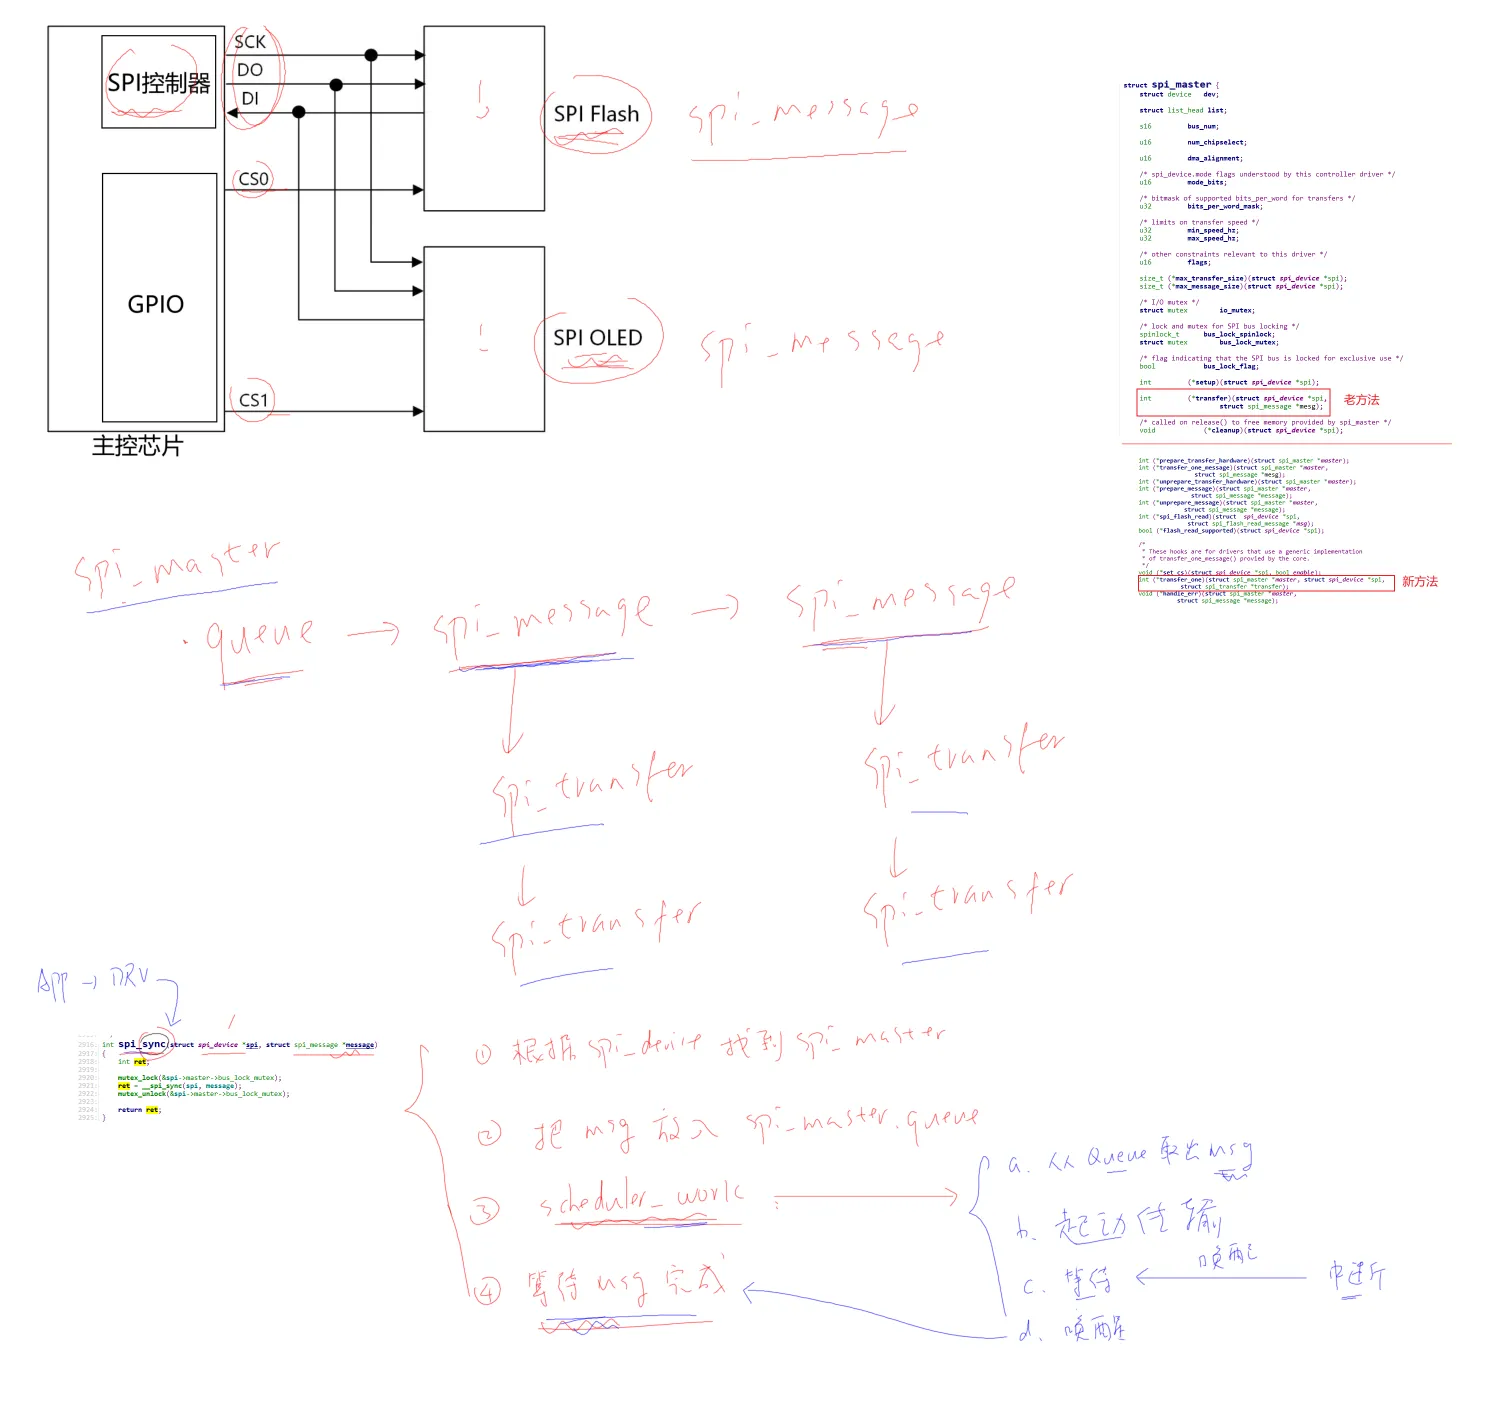 SCK
DO
DI
SPI控制器
CS0
GPIO
CS1
主控芯片
SPI Flash
SPI OLED
spi_message
spi_message
struct spi_master {
struct device dev;
struct list_head list;
s16 bus_num;
u16 num_chipselect;
u16 dma_alignment;
/* spi_device.mode flags understood by this controller driver */
u16 mode_bits;
/* bitmask of supported bits_per_word for transfers */
u32 bits_per_word_mask;
/* limits on transfer speed */
u32 min_speed_hz;
u32 max_speed_hz;
/* other constraints relevant to this driver */
u16 flags;
size_t (*max_transfer_size)(struct spi_device *spi);
size_t (*max_message_size)(struct spi_device *spi);
/* I/O mutex */
struct mutex io_mutex;
/* lock and mutex for SPI bus locking */
spinlock_t bus_lock_spinlock;
struct mutex bus_lock_mutex;
/* flag indicating that the SPI bus is locked for exclusive use */
bool bus_lock_flag;
int (*setup)(struct spi_device *spi);
int (*transfer)(struct spi_device *spi,
struct spi_message *mesg);
老方法
/* called on release() to free memory provided by spi_master */
void (*cleanup)(struct spi_device *spi);
int (*prepare_transfer_hardware)(struct spi_master *master);
int (*transfer_one_message)(struct spi_master *master,
struct spi_message *mesg);
int (*unprepare_transfer_hardware)(struct spi_master *master);
int (*prepare_message)(struct spi_master *master,
struct spi_message *message);
int (*unprepare_message)(struct spi_master *master,
struct spi_message *message);
int (*spi_flash_read)(struct spi_device *spi,
struct spi_flash_read_message *msg);
bool (*flash_read_supported)(struct spi_device *spi);
/*
* These hooks are for drivers that use a generic implementation
* of transfer_one_message() provied by the core.
*/
void (*set_cs)(struct spi_device *spi, bool enable);
int (*transfer_one)(struct spi_master *master, struct spi_device *spi,
struct spi_transfer *transfer);
新方法
void (*handle_err)(struct spi_master *master,
struct spi_message *message);
spi_master
queue → spi_message → spi_message
spi_transfer
spi_transfer
spi_transfer
spi_transfer
APP → DRV
2916: int spi_sync(struct spi_device *spi, struct spi_message *message)
2917: {
2918: int ret;
2919:
2920: mutex_lock(&spi->master->bus_lock_mutex);
2921: ret = __spi_sync(spi, message);
2922: mutex_unlock(&spi->master->bus_lock_mutex);
2923:
2924: return ret;
2925: }
① 根据 spi_device 找到 spi_master
② 把 msg 放入 spi_master.queue
③ scheduler_work
④ 等待 msg 完成
a. 从 Queue 取出 msg
b. 起动传输
c. 等待
唤醒
中断
d. 唤醒